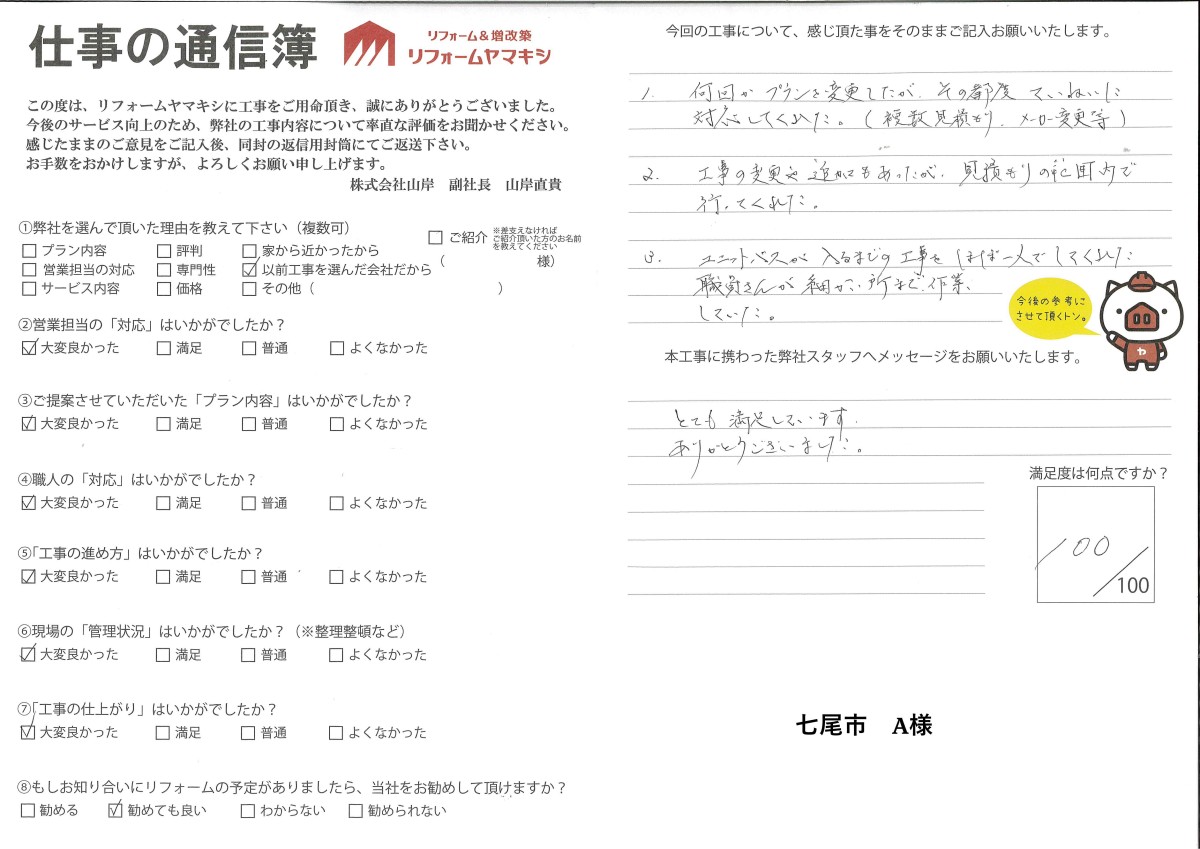 仕事の通信簿
リフォーム&増改築
リフォームヤマキシ
この度は、リフォームヤマキシに工事をご用命頂き、誠にありがとうございました。
今後のサービス向上のため、弊社の工事内容について率直な評価をお聞かせください。
感じたままのご意見をご記入後、同封の返信用封筒にてご返送下さい。
お手数をおかけしますが、よろしくお願い申し上げます。
株式会社山岸 副社長 山岸直貴
①弊社を選んで頂いた理由を教えて下さい（複数可）
□プラン内容 □評判 □家から近かったから
□営業担当の対応 □専門性 ☑以前工事を選んだ会社だから
□サービス内容 □価格 □その他（ ）
□ご紹介 ※差支えなければ
ご紹介頂いた方のお名前
を教えてください
（ 様）
②営業担当の「対応」はいかがでしたか？
☑大変良かった □満足 □普通 □よくなかった
③ご提案させていただいた「プラン内容」はいかがでしたか？
☑大変良かった □満足 □普通 □よくなかった
④職人の「対応」はいかがでしたか？
☑大変良かった □満足 □普通 □よくなかった
⑤「工事の進め方」はいかがでしたか？
☑大変良かった □満足 □普通 □よくなかった
⑥現場の「管理状況」はいかがでしたか？（※整理整頓など）
☑大変良かった □満足 □普通 □よくなかった
⑦「工事の仕上がり」はいかがでしたか？
☑大変良かった □満足 □普通 □よくなかった
⑧もしお知り合いにリフォームの予定がありましたら、当社をお勧めして頂けますか？
□勧める ☑勧めても良い □わからない □勧められない
今回の工事について、感じ頂た事をそのままご記入お願いいたします。
1. 何回かプランを変更したが、その都度ていねいに
対応してくれた。（複数見積もり、メーカー変更等）
2. 工事の変更や追加もあったが、見積もりの範囲内で
行ってくれた。
3. ユニットバスが入るまでの工事をほぼ一人でしてくれた
職員さんが細かい所まで作業
していた。
今後の参考に
させて頂くトン。
ヤ
本工事に携わった弊社スタッフへメッセージをお願いいたします。
とても満足しています。
ありがとうございました。
満足度は何点ですか？
100
/100
七尾市 A様